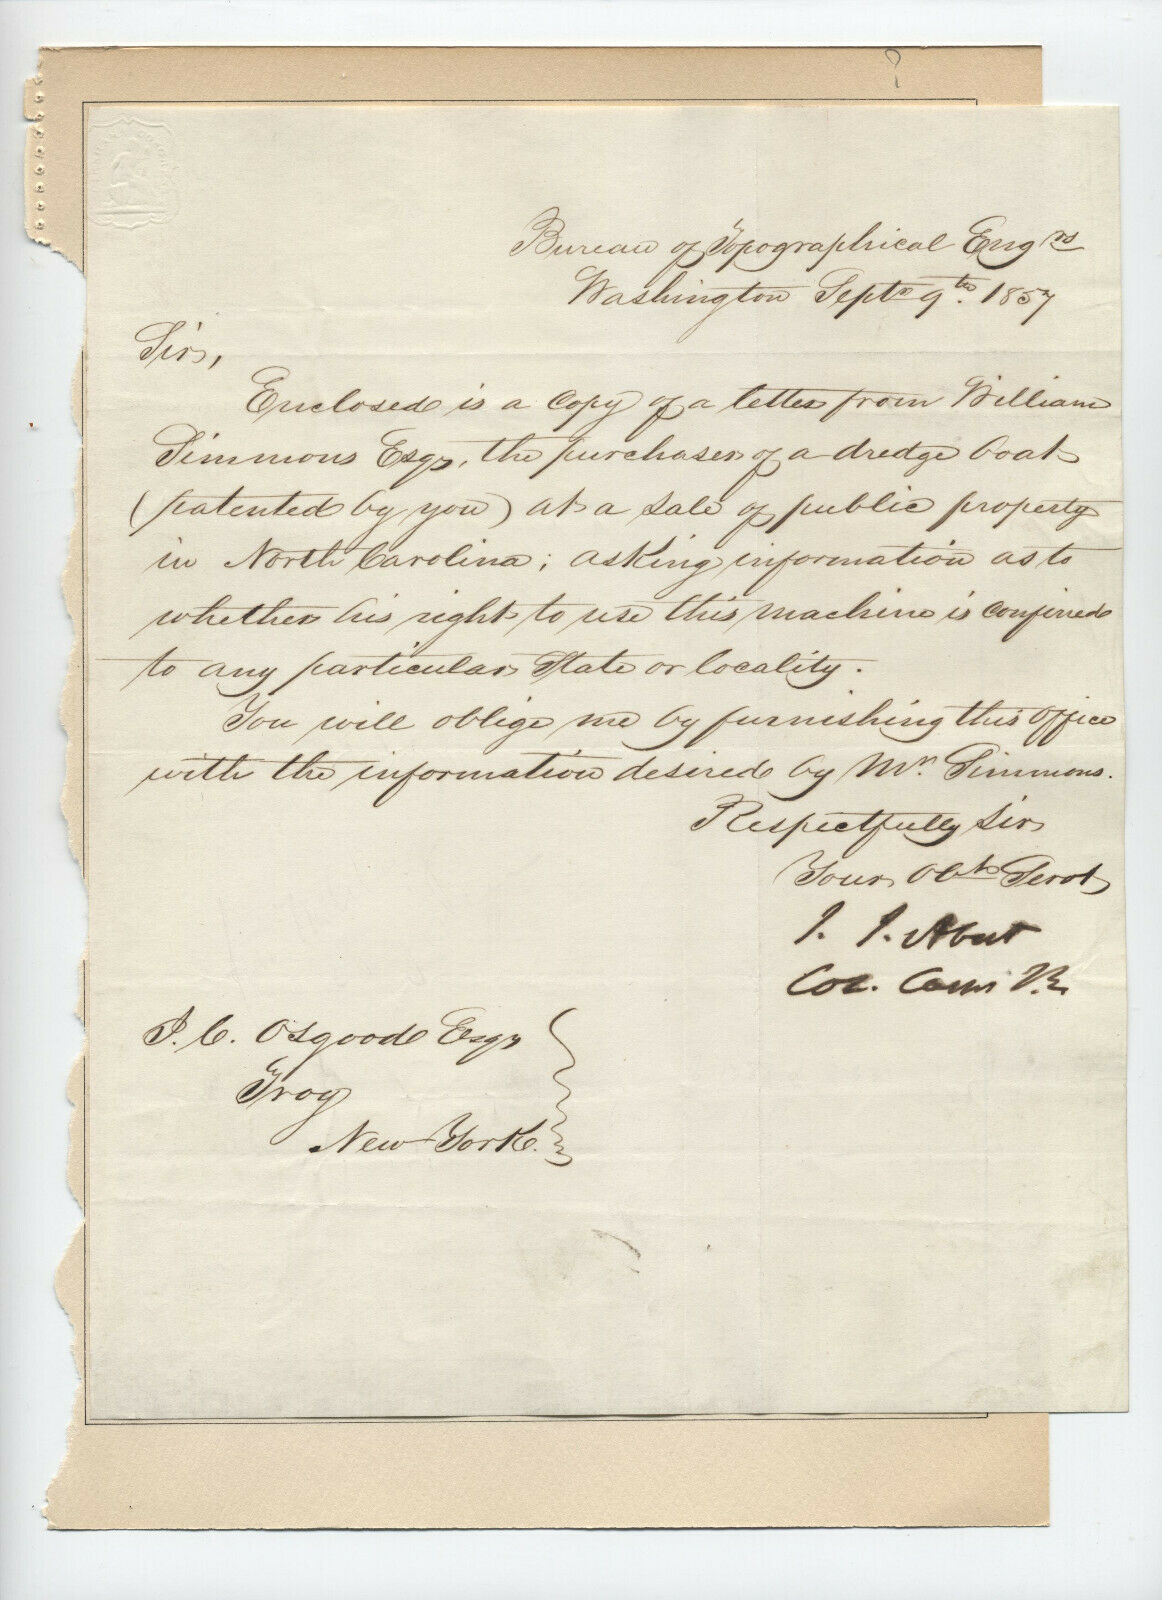 Bureau of Topographical Eng rs
Washington Septr 9th. 1857
Sir,
Enclosed is a copy of a letter from William
Simmons Esqr, the purchaser of a dredge boat
(patented by you) at a sale of public property
in North Carolina; asking information as to
whether his right to use this machine is confined
to any particular State or locality.
You will oblige me by furnishing this office
with the information desired by Mr. Simmons.
Respectfully Sir
Your Obt Servt
J. J. Abert
Col. Corps T. E.
J. C. Osgood Esqr
Troy
New York.